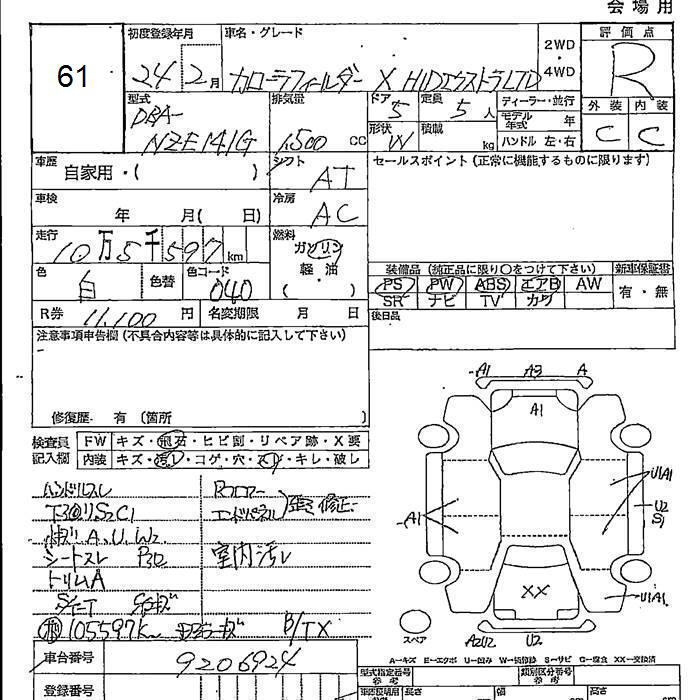 会場用
61
初度登録年月
24 2月
車名・グレード
カローラフィールダー X HIDエクストラLTD
2WD
・
4WD
評価点
R
外装 内装
C C
型式
DBA-
NZE141G
排気量
1,500 cc
ドア
5
定員
5人
形状
W
積載
kg
ディーラー・並行
モデル年式 年
ハンドル 左・右
車歴
自家用・( )
シフト
AT
セールスポイント (正常に機能するものに限ります)
車検
年 月( 日)
冷房
AC
走行
10万5千597km
燃料
ガソリン
軽・油
( )
色
白
色替
色コード
040
装備品 (純正品に限り○をつけて下さい)
新車保証書
PS PW ABS エアB AW
SR ナビ TV カワ
有・無
R券 11,100円
名変期限 月 日
後日品
注意事項申告欄 (不具合内容等は具体的に記入して下さい)
修復歴 有 〔箇所 〕
検査員記入欄
FW キズ・飛石・ヒビ割・リペア跡・X要
内装 キズ・汚れ・コゲ・穴・スレ・キレ・破し
ハンドルスレ
シートスレ
トリムA
エンドパネル
修正
室内汚れ
105597km
B/TX
車台番号
9206924
登録番号
A1 A3 A
A1
A1
U1A1
U2
S1
XX
U1A1
スペア
A2U2 U2
A-キズ E-エクボ U-凹み W-補修跡 S-サビ C-腐食 XX-交換済
型式指定番号
参考
類別区分番号
参考
長さ
幅
高さ